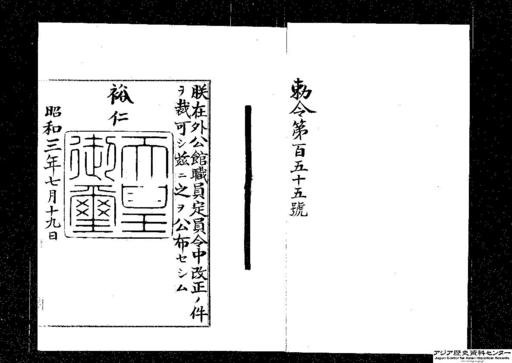 勅令第百五十五號
朕在外公館職員定員令中改正ノ件
ヲ裁可シ茲ニ之ヲ公布セシム
裕仁
天皇御璽
昭和三年七月十九日
アジア歴史資料センター
Japan Center for Asian Historical Records